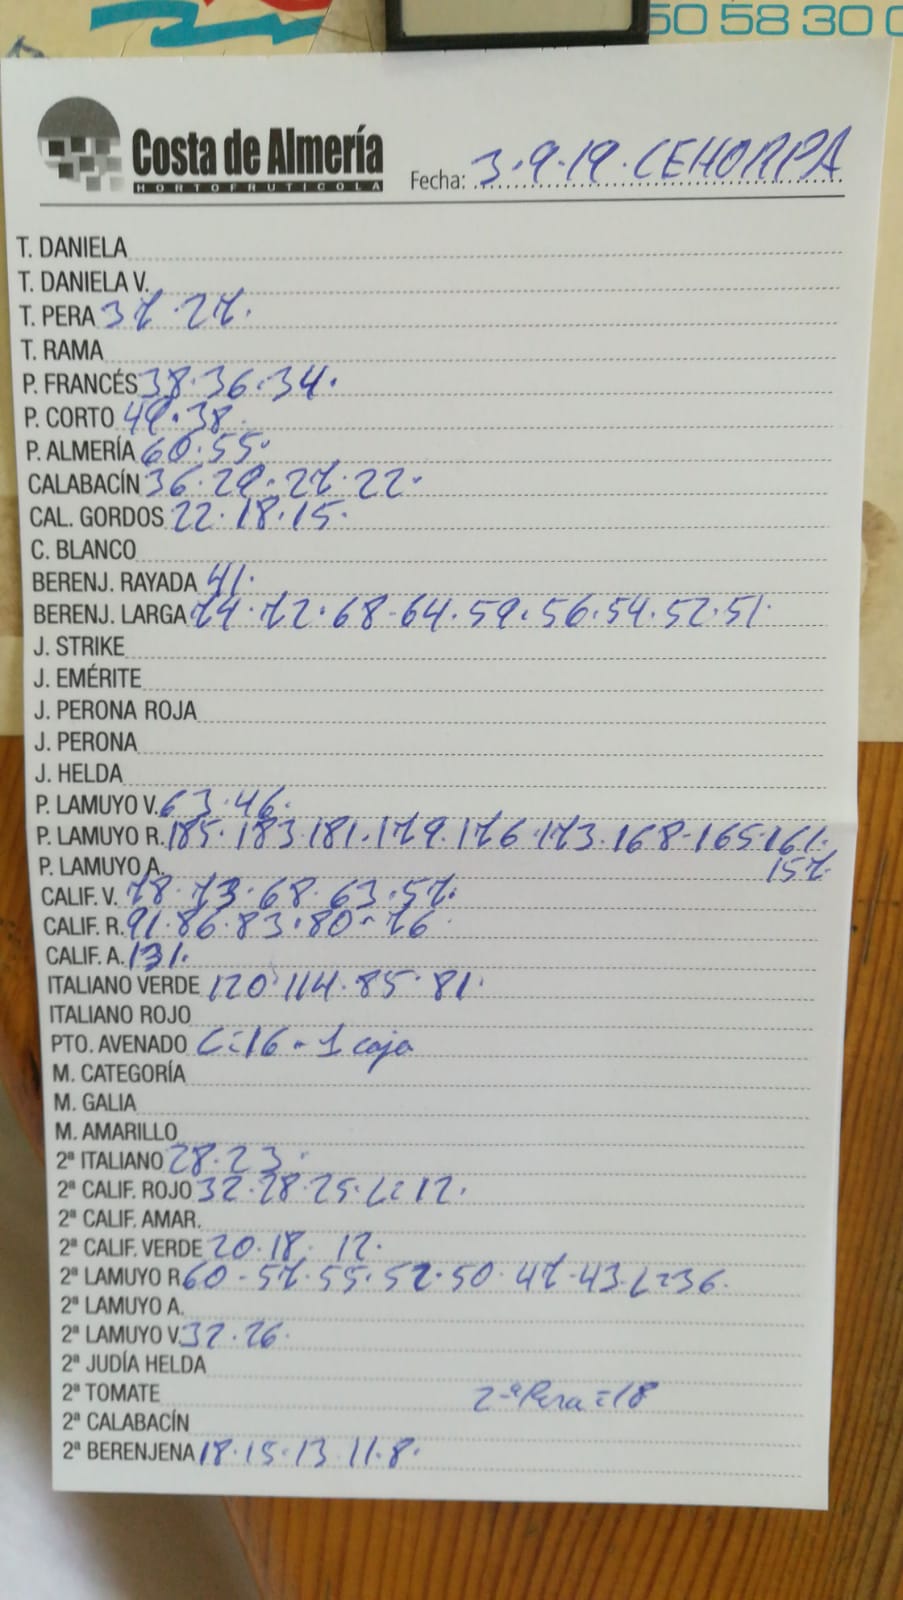 50 58 30 0
Costa de Almería
HORTOFRUTICOLA
Fecha: 3.9.19. CEHORPA
T. DANIELA
T. DANIELA V.
T. PERA 37.27.
T. RAMA
P. FRANCÉS 38.36.34.
P. CORTO 49.38.
P. ALMERÍA 60.55.
CALABACÍN 36.29.27.22.
CAL. GORDOS 22.18.15.
C. BLANCO
BERENJ. RAYADA 41.
BERENJ. LARGA 74.72.68-64.59.56.54.52.51.
J. STRIKE
J. EMÉRITE
J. PERONA ROJA
J. PERONA
J. HELDA
P. LAMUYO V. 63.46.
P. LAMUYO R. 185.183.181.179.176.173.168-165.161.
P. LAMUYO A. 157.
CALIF. V. 78.73.68.63.57.
CALIF. R. 91.86.83.80-76.
CALIF. A. 131.
ITALIANO VERDE 120.114.85.81.
ITALIANO ROJO
PTO. AVENADO C=16-1 caja
M. CATEGORÍA
M. GALIA
M. AMARILLO
2ª ITALIANO 28.23.
2ª CALIF. ROJO 32.28.25.L=12.
2ª CALIF. AMAR.
2ª CALIF. VERDE 20.18. 12.
2ª LAMUYO R. 60-57.55.52.50.47-43.L=36.
2ª LAMUYO A.
2ª LAMUYO V. 32.26.
2ª JUDÍA HELDA
2ª TOMATE 2-ª Pera=18
2ª CALABACÍN
2ª BERENJENA 18.15.13.11.8.